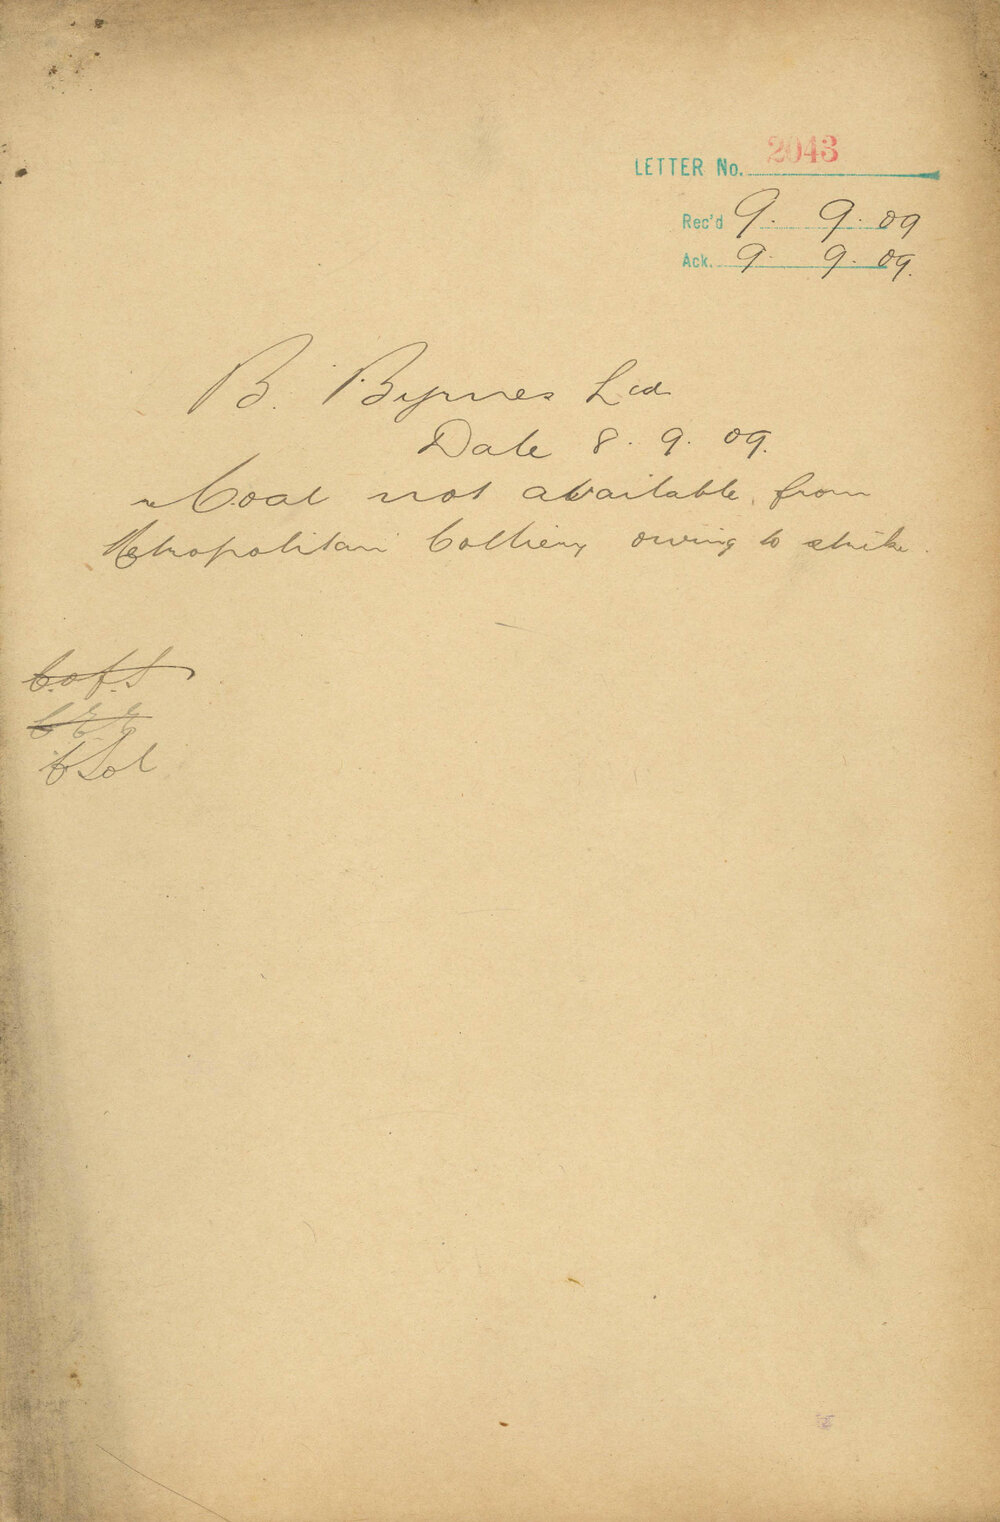 LETTER No. 2043
Rec'd 9. 9. 09
Ack. 9. 9. 09.
B. Byrnes Ltd
Date 8. 9. 09.
re Coal not available from
Metropolitan Colliery owing to strike.
C. of S
C E E
C Sol